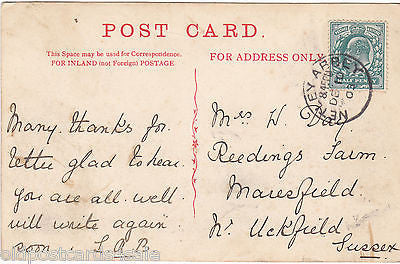 POST CARD.
This Space may be used for Correspondence.
FOR INLAND (not Foreign) POSTAGE
FOR ADDRESS ONLY
HALF PENNY
NETLEY ABBEY
DE
Many thanks for
letter glad to hear
you are all well
will write again
soon. L.A.B
Mrs W. Day
Reedings Farm
Maresfield
Nr. Uckfield
Sussex